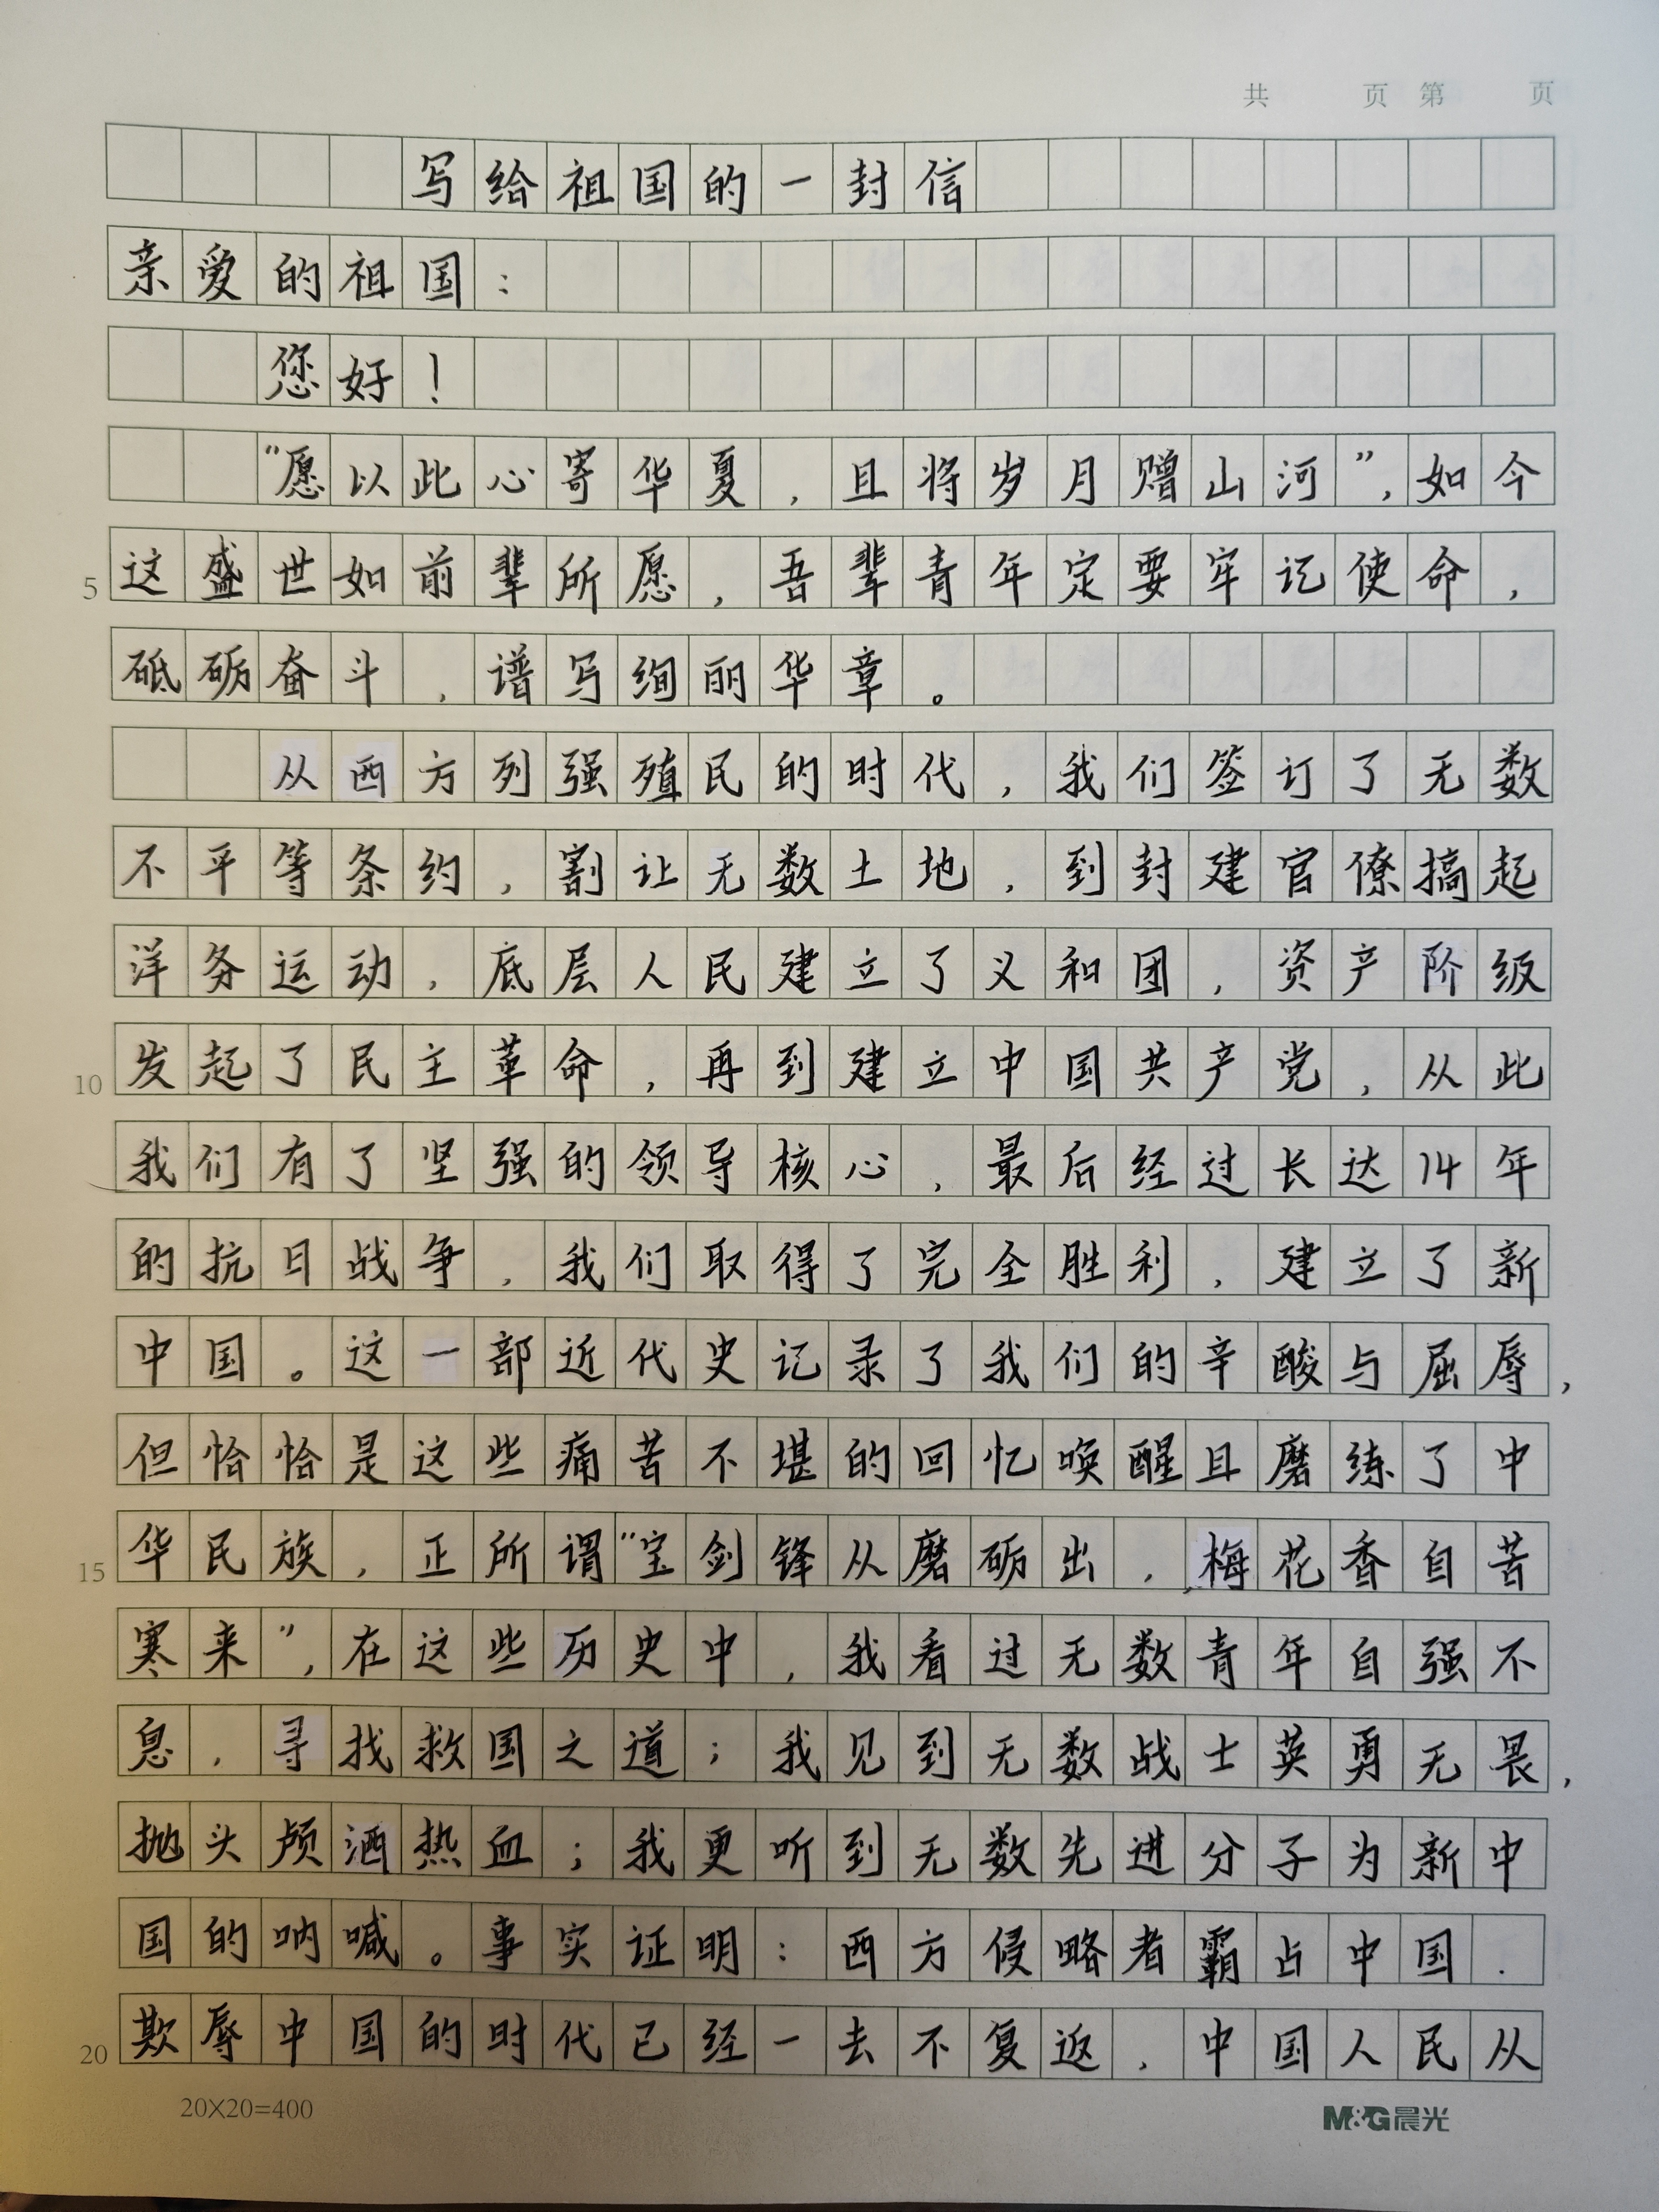 共 页 第 页
写给祖国的一封信
亲爱的祖国：
您好！
“愿以此心寄华夏，且将岁月赠山河”，如今
5 这盛世如前辈所愿，吾辈青年定要牢记使命，
砥砺奋斗，谱写绚丽华章。
从西方列强殖民的时代，我们签订了无数
不平等条约，割让无数土地，到封建官僚搞起
洋务运动，底层人民建立了义和团，资产阶级
10 发起了民主革命，再到建立中国共产党，从此
我们有了坚强的领导核心，最后经过长达14年
的抗日战争，我们取得了完全胜利，建立了新
中国。这一部近代史记录了我们的辛酸与屈辱，
但恰恰是这些痛苦不堪的回忆唤醒且磨练了中
15 华民族，正所谓“宝剑锋从磨砺出，梅花香自苦
寒来”，在这些历史中，我看过无数青年自强不
息，寻找救国之道；我见到无数战士英勇无畏，
抛头颅洒热血；我更听到无数先进分子为新中
国的呐喊。事实证明：西方侵略者霸占中国．
20 欺辱中国的时代已经一去不复返，中国人民从
20X20=400 M&G晨光